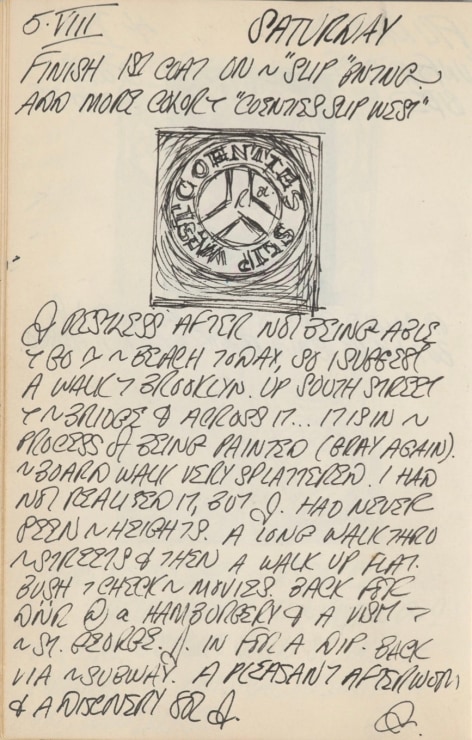 5·VIII SATURDAY
FINISH 1ST COAT ON ~ "SLIP" PNTNG.
ADD MORE COLOR T "COENTIES SLIP WEST"
COENTIES SLIP WEST
J. RESTLESS AFTER NOT BEING ABLE
T GO T ~ BEACH TODAY, SO I SUGGEST
A WALK T BROOKLYN. UP SOUTH STREET
T ~ BRIDGE & ACROSS IT... IT IS IN ~
PROCESS of BEING PAINTED (GRAY AGAIN).
~ BOARD WALK VERY SPLATTERED. I HAD
NOT REALISED IT, BUT J. HAD NEVER
SEEN ~ HEIGHTS. A LONG WALK THRO
~ STREETS & THEN A WALK UP FLAT-
BUSH T CHECK ~ MOVIES. BACK FOR
DNR @ a HAMBURGERY & A VISIT T
~ ST. GEORGE. J. IN FOR A DIP. BACK
VIA ~ SUBWAY. A PLEASANT AFTERNOON
& A DISCOVERY FOR J.